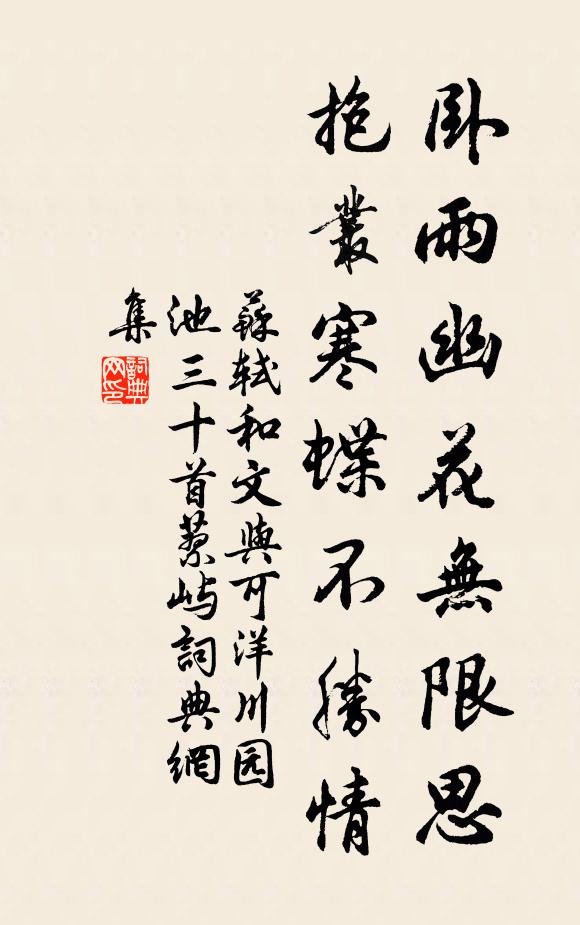 卧雨幽花無限思
抱叢寒蝶不勝情
蘇軾和文與可洋川园
池三十首蓼嶼詞典網
集
詞典网印